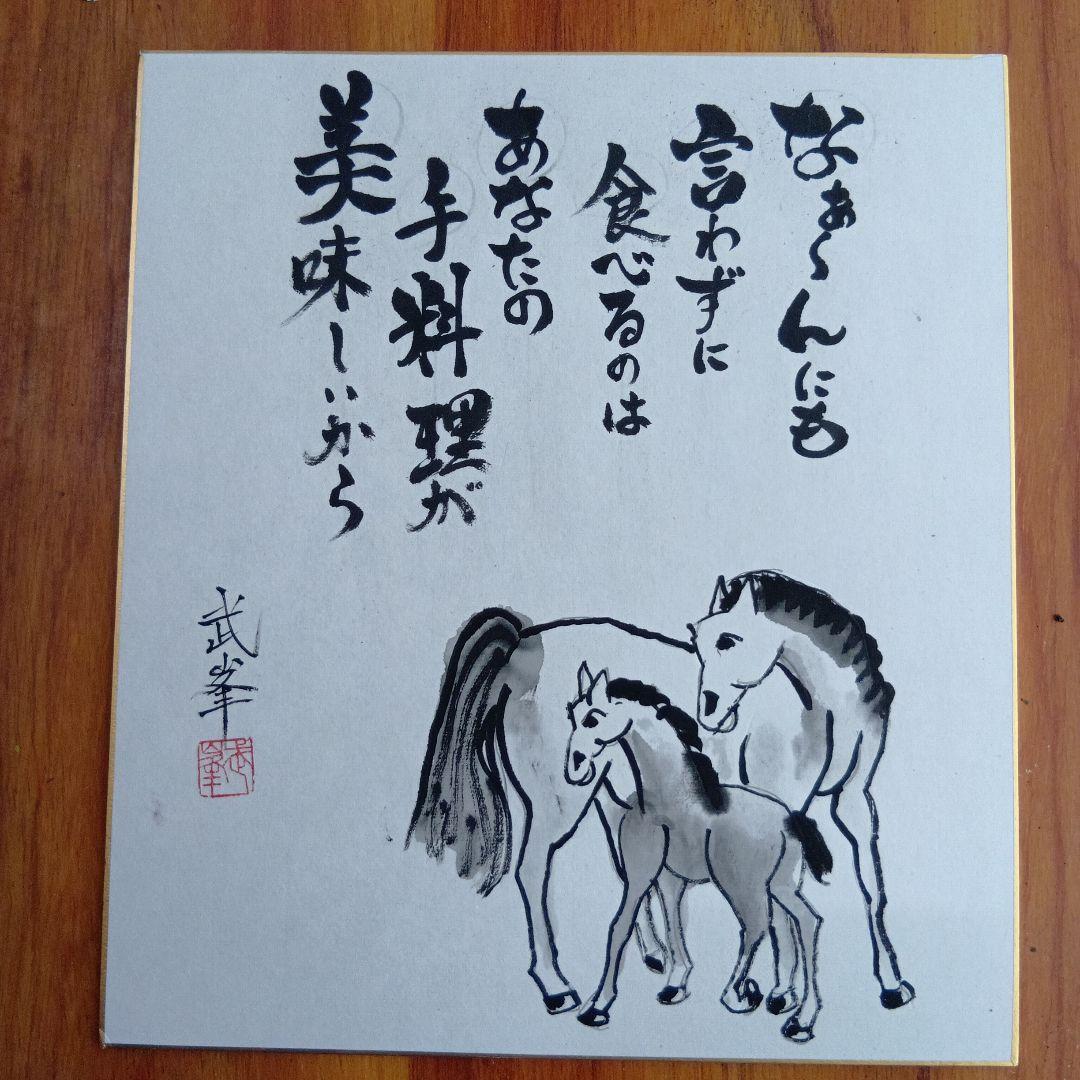 なぁ〜んにも
言わずに
食べるのは
あなたの
手料理が
美味しいから
武峯
武峯